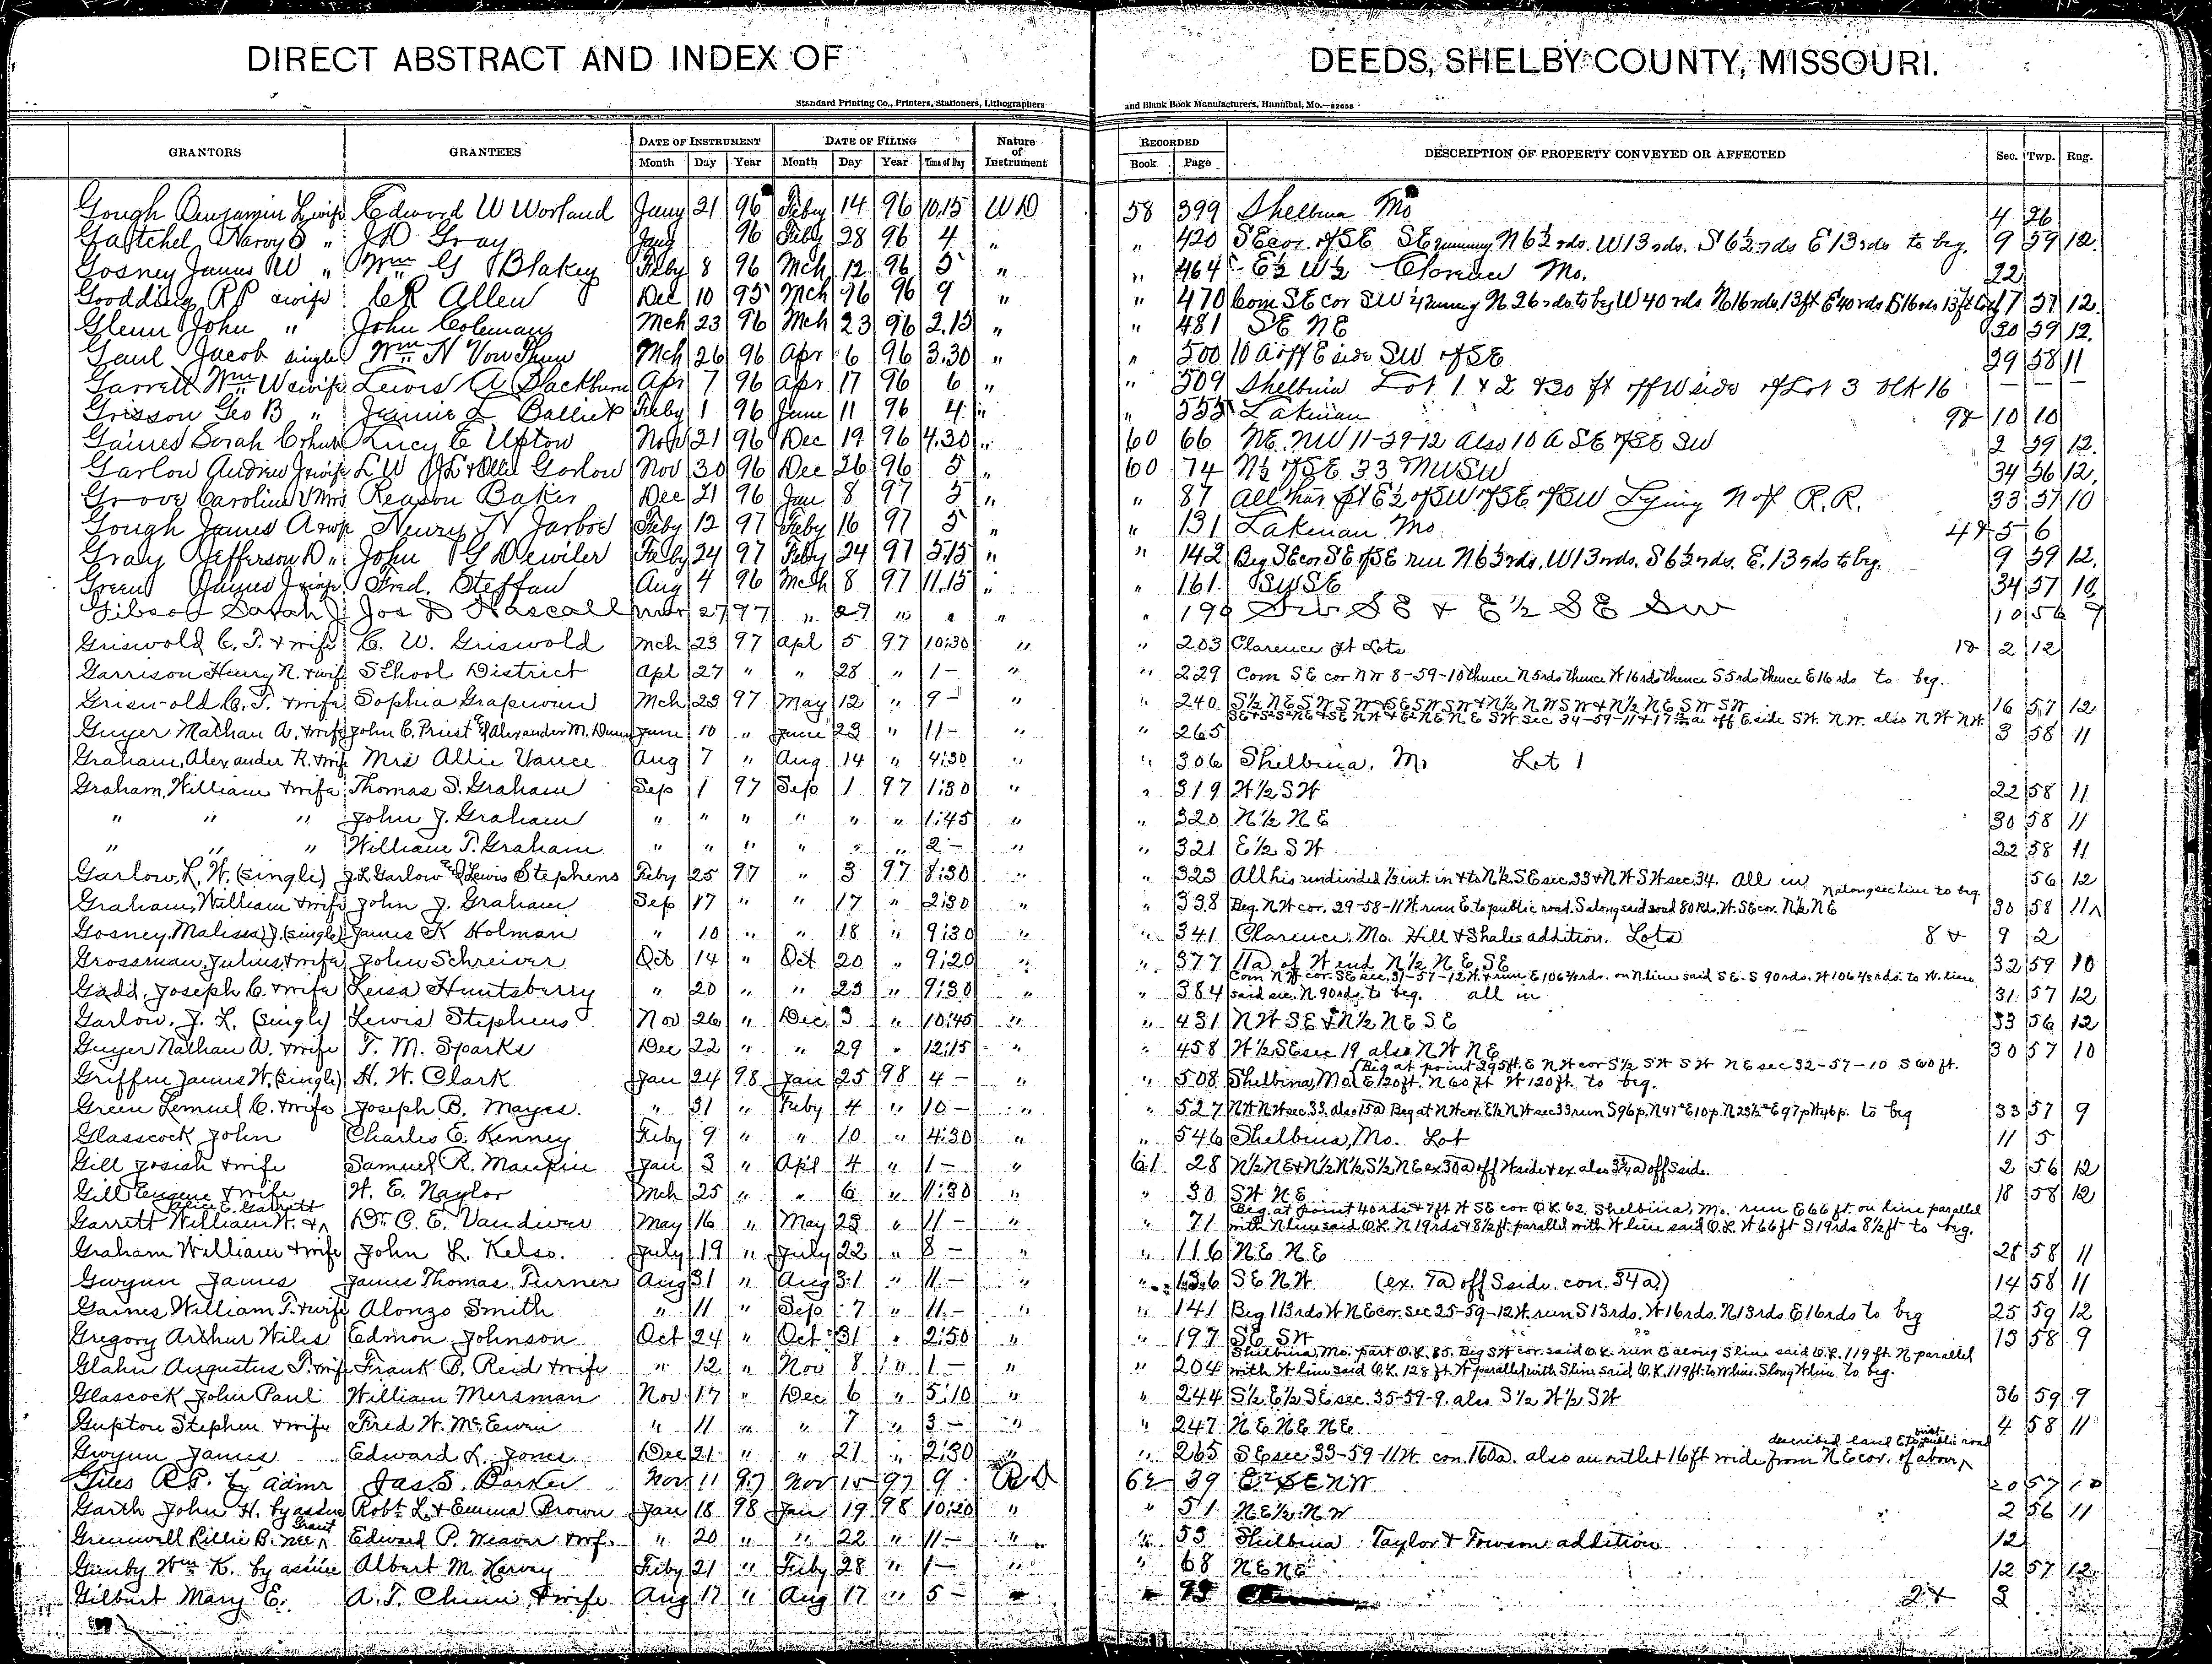 DIRECT ABSTRACT AND INDEX OF DEEDS, SHELBY COUNTY, MISSOURI.
Standard Printing Co., Printers, Stationers, Lithographers and Blank Book Manufacturers, Hannibal, Mo.
GRANTORS GRANTEES DATE OF INSTRUMENT DATE OF FILING Nature of Instrument RECORDED DESCRIPTION OF PROPERTY CONVEYED OR AFFECTED Sec. Twp. Rng.
Month Day Year Month Day Year Time of Day Book Page
Gough Benjamin L wife Edward W Worland Jany 21 96 Feby 14 96 10.15 WD 58 399 Shelbina Mo 4 26
Gattchel Harvy S " J D Gray Jany 96 Feby 28 96 4 " " 420 SE cor. of SE SE running N 6½ rds. W 13 rds. S 6½ rds E 13 rds to beg. 9 59 12.
Gosney James W " Wm G Blakey Feby 8 96 Mch 12 96 5 " " 464 E½ W½ Clarence Mo. 22
Goodding R P & wife C R Allen Dec 10 95 Mch 96 9 " " 470 Com SE cor SW ¼ running N 26 rds to beg W 40 rds N 16 rds 13 ft E 40 rds S 16 rds 13 ft to beg 17 57 12.
Glenn John " John Coleman Mch 23 96 Mch 23 96 2.15 " " 481 SE NE 30 59 12.
Gaul Jacob single Wm N Mch 26 96 Apr 6 96 3.30 " " 500 10 A off E side SW of SE 29 58 11
Garrett Wm W & wife Lewis A Blackburn Apr 7 96 Apr 17 96 6 " " 509 Shelbina Lot 1 & 2 & 20 ft off W side of Lot 3 Blk 16
Grisson Geo B " Jennie L Feby 1 96 June 11 96 4 " " 555 Lakenan 9& 10 10
Gaines Sarah C & hus Lucy E Upton Nov 21 96 Dec 19 96 4.30 " 60 66 NE NW 11-59-12 Also 10 A SE of SE SW 2 59 12.
Garlow Andrew J & wife L W J L & Ollie Garlow Nov 30 96 Dec 26 96 5 " 60 74 N½ of SE 33 NWSW 34 56 12.
Grove Caroline V Mrs Reason Baker Dec 21 96 Jan 8 97 5 " " 87 All that pt E½ of SW of SE of SW Lying N of R.R. 33 57 10
Gough James A & wf Henry N Jarboe Feby 12 97 Feby 16 97 5 " " 131 Lakenan Mo. 4 & 5 6
Gray Jefferson D " John G Dewiler Feby 24 97 Feby 24 97 5.15 " " 142 Beg SE cor SE of SE run N 6½ rds. W 13 rds. S 6½ rds. E. 13 rds to beg. 9 59 12.
Green James J wife Fred. Steffan Aug 4 96 Mch 8 97 11.15 " " 161. SWSE 34 57 10.
Gibson Sarah J Jos D Hascall Mar 27 97 " 27 " " " " 190 SW SE & E½ SE SW 10 56 9
Griswold C. T. & wife C. W. Griswold Mch 23 97 Apl 5 97 10:30 " " 203 Clarence pt Lots 1& 2 12
Garrison Henry N. & wife School District Apl 27 " " 28 " 1- " " 229 Com SE cor NW 8-59-10 thence N 5 rds thence W 16 rds thence S 5 rds thence E 16 rds to beg.
Griswold C. T. & wife Sophia Mch 23 97 May 12 " 9- " " 240 S½ NESWSW & SESWSW & N½ NWSW & N½ NESWSW 16 57 12
Guyer Nathan A. & wife John C. Priest & Alexander M. June 10 " June 23 " 11- " " 265 34-59-11 & 17 a off E side SW. NW. also NW NW 3 58 11
Graham, Alexander R. & wife Mrs Allie Vance Aug 7 " Aug 14 " 4:30 " " 306 Shelbina, Mo Lot 1
Graham, William & wife Thomas S. Graham Sep 1 97 Sep 1 97 1:30 " " 319 W½ SW 22 58 11
" " " John J. Graham " " " " " " 1:45 " " 320 N½ NE 30 58 11
" " " William T. Graham " " " " " " 2- " " 321 E½ SW 22 58 11
Garlow, L. W. (single) J. L. Garlow & Lewis Stephens Feby 25 97 " 3 97 8:30 " " 323 All his undivided ⅓ int. in & to N½ SE sec. 33 & NW SW sec. 34. All in 56 12
Graham, William & wife John J. Graham Sep 17 " " 17 " 2:30 " " 338 Beg. NW cor. 29-58-11 W. run E. to public road. S along said road 80 Rd. W. SE cor. N½ NE N along sec line to beg. 30 58 11
Gosney, Malissa J. (single) James K Holman " 10 " " 18 " 9:30 " " 341 Clarence, Mo. Hill & Shales addition. Lots 8 & 9 2
Grossman, Julius, & wife John Schreiver Oct 14 " Oct 20 " 9:20 " " 377 11a of W end N½ NE SE 32 59 10
Gadd, Joseph C. & wife Leisa Huntsberry " 20 " " 23 " 9:30 " " 384 Com NW cor. SE sec. 31-57-12 W & run E 106⅔ rds. on N line said SE. S 90 rds. W 106⅔ rds. to W. line said sec. N 90 rds. to beg. all in 31 57 12
Garlow, J. L. (single) Lewis Stephens Nov 26 " Dec 3 " 10:45 " " 431 NW SE & N½ NE SE 33 56 12
Guyer Nathan A. & wife T. M. Sparks Dec 22 " " 29 " 12:15 " " 458 W½ SE sec 19 also NW NE 30 57 10
Griffin James W. (single) H. W. Clark Jan 24 98 Jan 25 98 4- " " 508 Shelbina, Mo. (Beg at point 295 ft. E NW cor S½ SW SW NE sec 32-57-10 S 60 ft. E 120 ft. N 60 ft W 120 ft. to beg.
Green Lemuel C. & wife Joseph B. Mayes. " 31 " Feby 4 " 10- " " 527 NW NW sec. 33. also 15a Beg at NW cor. E½ NW sec 33 run S 96 p. N 47° E 10 p. N 23½° E 97 p W 46 p. to beg 33 57 9
Glasscock John Charles E. Kenney Feby 9 " " 10 " 4:30 " " 546 Shelbina, Mo. Lot 11 5
Gill Josiah & wife Samuel R. Maupin Jan 3 " Apl 4 " 1- " 61 28 N½ NE & N½ N½ S½ NE ex 30a off W side & ex also 3¾a off S side. 2 56 12
Gill Eugene & wife W. E. Naylor Mch 25 " " 6 " 11:30 " " 30 SW NE 18 58 12
Garrett William W. & Alice E. Garrett Dr. C. E. Vandiver May 16 " May 23 " 11- " " 71 Beg. at point 40 rds & 7 ft W SE cor. O.L. 62, Shelbina, Mo. run E 66 ft. on line parallel with N line said O.L. N 19 rds & 8½ ft. parallel with W line said O.L. W 66 ft S 19 rds 8½ ft to beg.
Graham William & wife John L. Kelso. July 19 " July 22 " 8- " " 116 NE NE 28 58 11
Gwynn James James Thomas Turner Aug 31 " Aug 31 " 11- " " 136 SE NW (ex. 7a off S side. con. 34a) 14 58 11
Gaines, William T. & wife Alonzo Smith " 11 " Sep 7 " 11- " " 141 Beg 113 rds W NE cor. sec 25-59-12 W. run S 13 rds. W 16 rds. N 13 rds E 16 rds to beg 25 59 12
Gregory Arthur Wiles Edmon Johnson Oct 24 " Oct 31 " 2:50 " " 197 SE SW 13 58 9
Glahn Augustus T. & wife Frank B. Reid & wife " 12 " Nov 8 " 1- " " 204 Shelbina, Mo. part O.L. 85. Beg SW cor. said O.L. run E along S line said O.L. 119 ft. N parallel with W line said O.L. 128 ft. W parallel with S line said O.L. 119 ft. to W line. S along W line to beg.
Glascock John Paul William Mersman Nov 17 " Dec 6 " 5:10 " " 244 S½ E½ SE sec. 35-59-9. also S½ W½ SW 36 59 9
Gupton Stephen & wife Fred W. McEwen " 11 " " 7 " 3- " " 247 NE NE NE 4 58 11
Gwynn James Edward L. Jones Dec 21 " " 21 " 2:30 " " 265 SE sec 33-59-11 W. con. 160a. also an outlet 16 ft wide from NE cor. of above described land E to public road
Giles R P. by admr Jas. S. Parker Nov 11 97 Nov 15 97 9 62 39 E SENW 20 57 10
Garth John H. by assnee Robt. L. & Emma Brown Jan 18 98 Jan 19 98 10:20 " " 51 NE½ NW 2 56 11
Greenwell Lillie B. nee Grant Edward P. Weaver & wf. " 20 " " 22 " 11- " " 53 Shelbina Taylor & Towson addition 12
Wm K. by assnee Albert M. Harvey Feby 21 " Feby 28 " 1- " " 68 NENE 12 57 12
Gilbert Mary E. A. T. & wife Aug 17 " Aug 17 " 5- 93 2 & 3